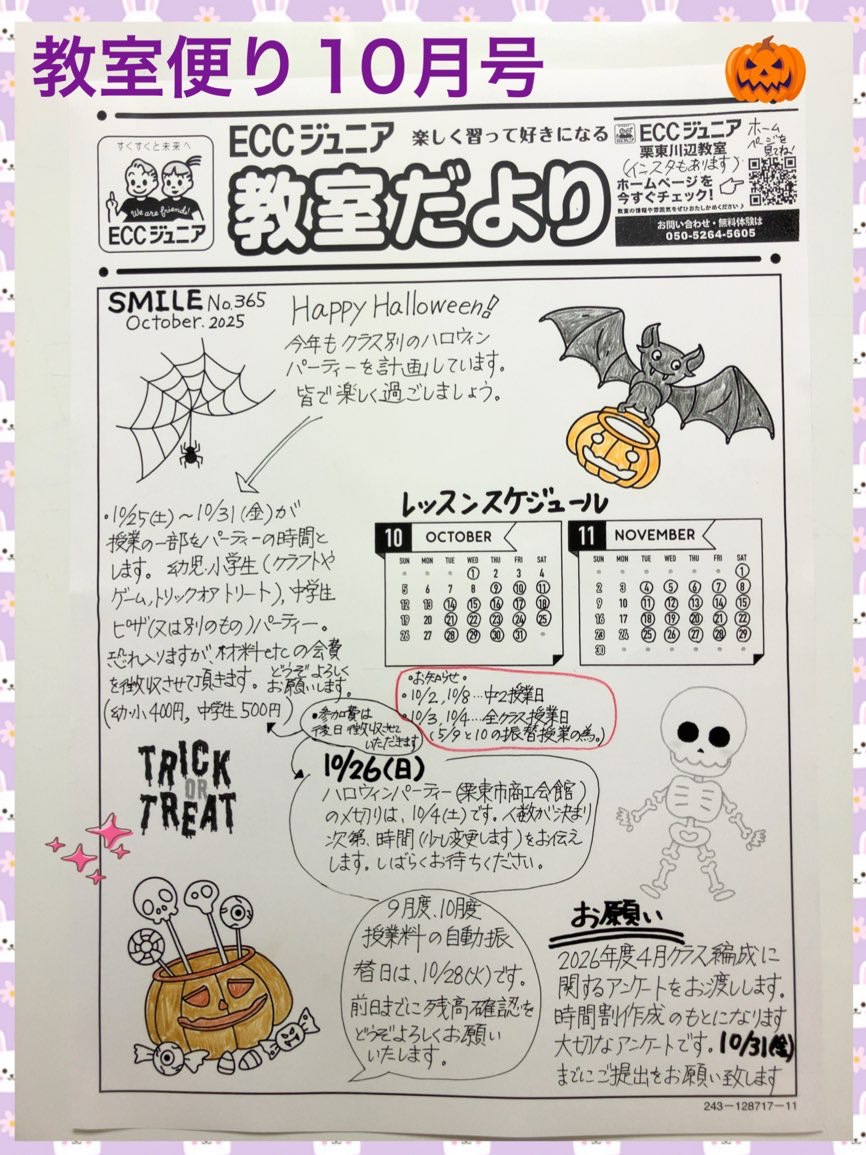 教室便り 10月号
すくすくと未来へ
We are friends!
ECCジュニア
ECCジュニア 楽しく習って好きになる
教室だより
ECCジュニア
栗東川辺教室
(インスタもあります)
ホームページを
今すぐチェック!
教室の情報や雰囲気をぜひおたしかめください♪
ホーム
ページを
見てね!
お問い合わせ・無料体験は
050-5264-5605
SMILE No.365
October. 2025
Happy Halloween!
今年もクラス別のハロウィン
パーティーを計画しています。
皆で楽しく過ごしましょう。
・10/25(土)~10/31(金)が
授業の一部をパーティーの時間と
します。幼児・小学生(クラフトや
ゲーム,トリックオアトリート),中学生
ピザ(又は別のもの)パーティー。
恐れ入りますが、材料etcの会費
を徴収させて頂きます。どうぞよろしく
お願いします。
(幼・小400円, 中学生500円)
・参加費は
後日徴収させて
いただきます
レッスンスケジュール
10 OCTOBER
SUN MON TUE WED THU FRI SAT
1 2 3 4
5 6 7 8 9 10 11
12 13 14 15 16 17 18
19 20 21 22 23 24 25
26 27 28 29 30 31
11 NOVEMBER
SUN MON TUE WED THU FRI SAT
1
2 3 4 5 6 7 8
9 10 11 12 13 14 15
16 17 18 19 20 21 22
23 24 25 26 27 28 29
30
・お知らせ・
・10/2, 10/8…中2授業日
・10/3, 10/4…全クラス授業日
(5/9と10の振替授業の為。)
TRICK
OR
TREAT
10/26(日)
ハロウィンパーティー(栗東市商工会館)
の〆切りは、10/4(土)です。人数が決まり
次第、時間(少し変更します)をお伝え
します。しばらくお待ちください。
9月度、10月度
授業料の自動振
替日は、10/28(火)です。
前日までに残高確認を
どうぞよろしくお願い
いたします。
お願い
2026年度4月クラス編成に
関するアンケートをお渡しします。
時間割作成のもとになります
大切なアンケートです。10/31(金)
までにご提出をお願い致します
243-128717-11